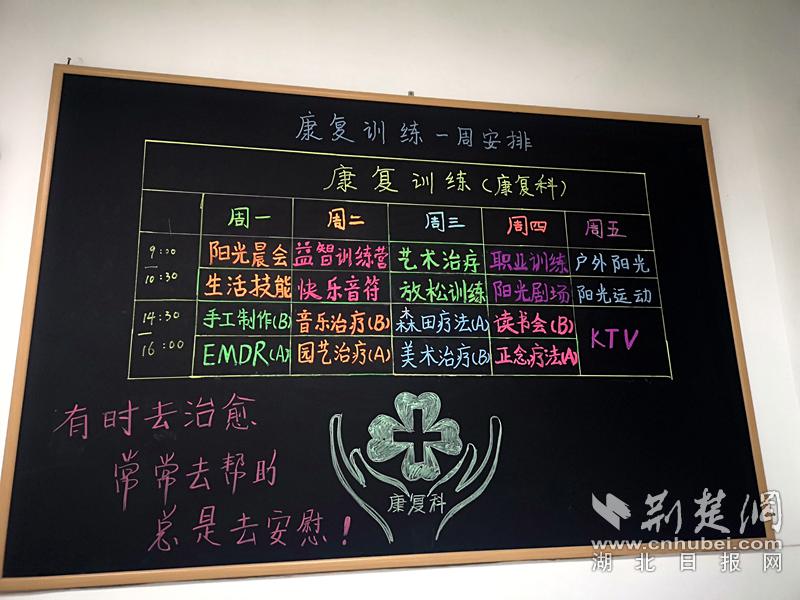 康复训练一周安排
康复训练(康复科)
周一 周二 周三 周四 周五
9:00 — 10:30
阳光晨会 益智训练营 艺术治疗 职业训练 户外阳光
生活技能 快乐音符 放松训练 阳光剧场 阳光运动
14:30 — 16:00
手工制作(B) 音乐治疗(B) 森田疗法(A) 读书会(B) KTV
EMDR(A) 园艺治疗(A) 美术治疗(B) 正念疗法(A)
有时去治愈
常常去帮助
总是去安慰!
康复科
荆楚网
www.cnhubei.com
湖北日报网